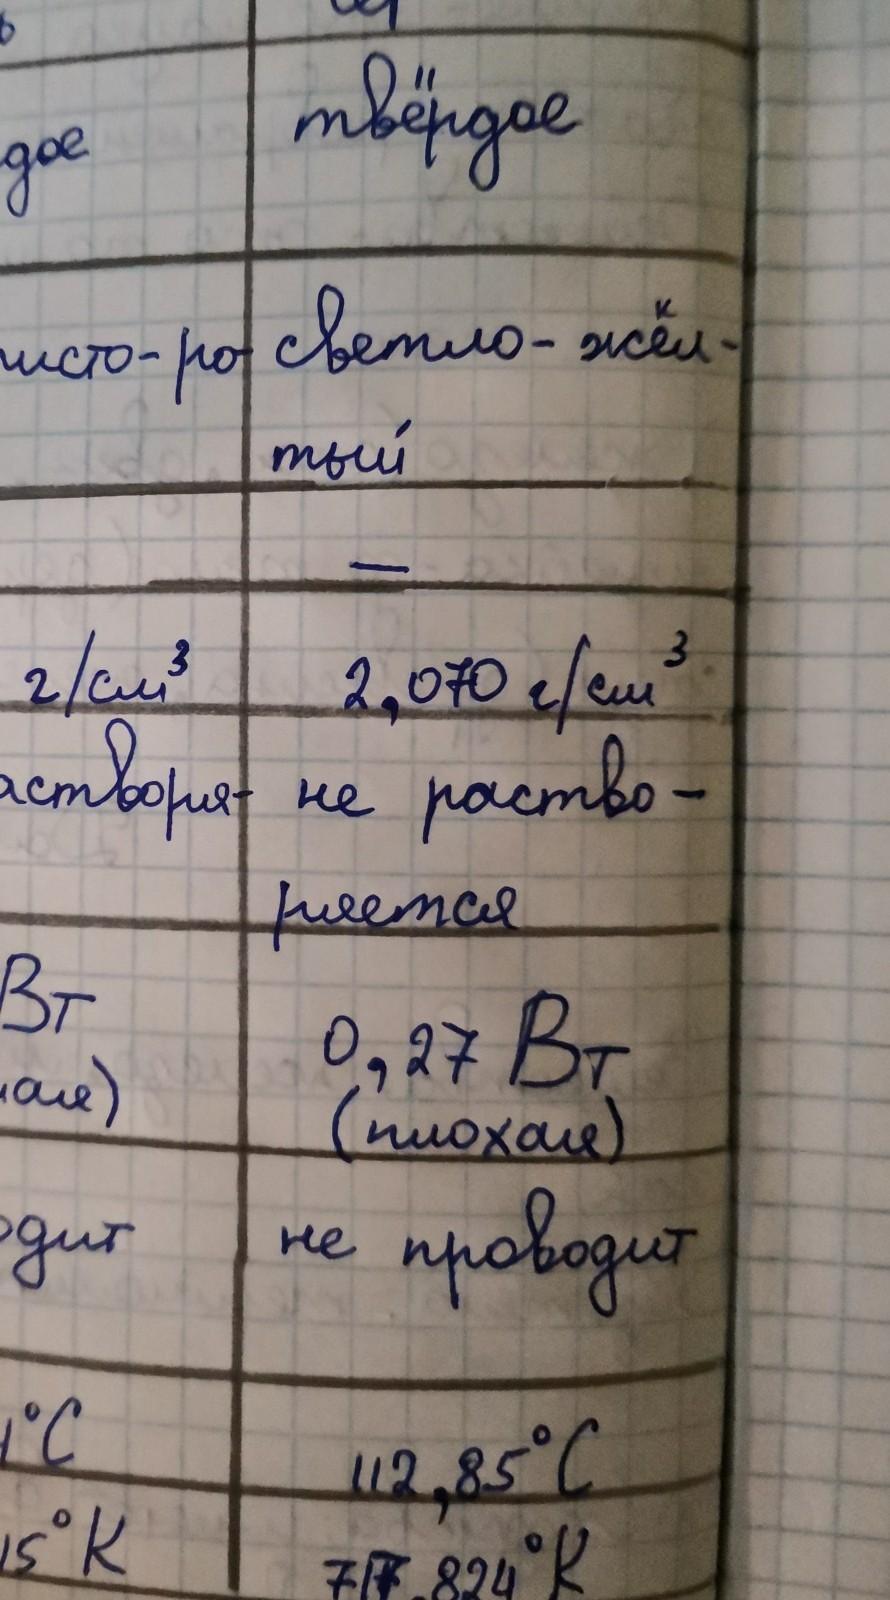 твёрдое
дое
исто-ро
светло-жёл-
тый
—
г/см³
2,070 г/см³
астворя-
не раство-
ряется
Вт
0,27 Вт
ая)
(плохая)
одит
не проводит
1°C
112,85°C
15°K
717,824°K